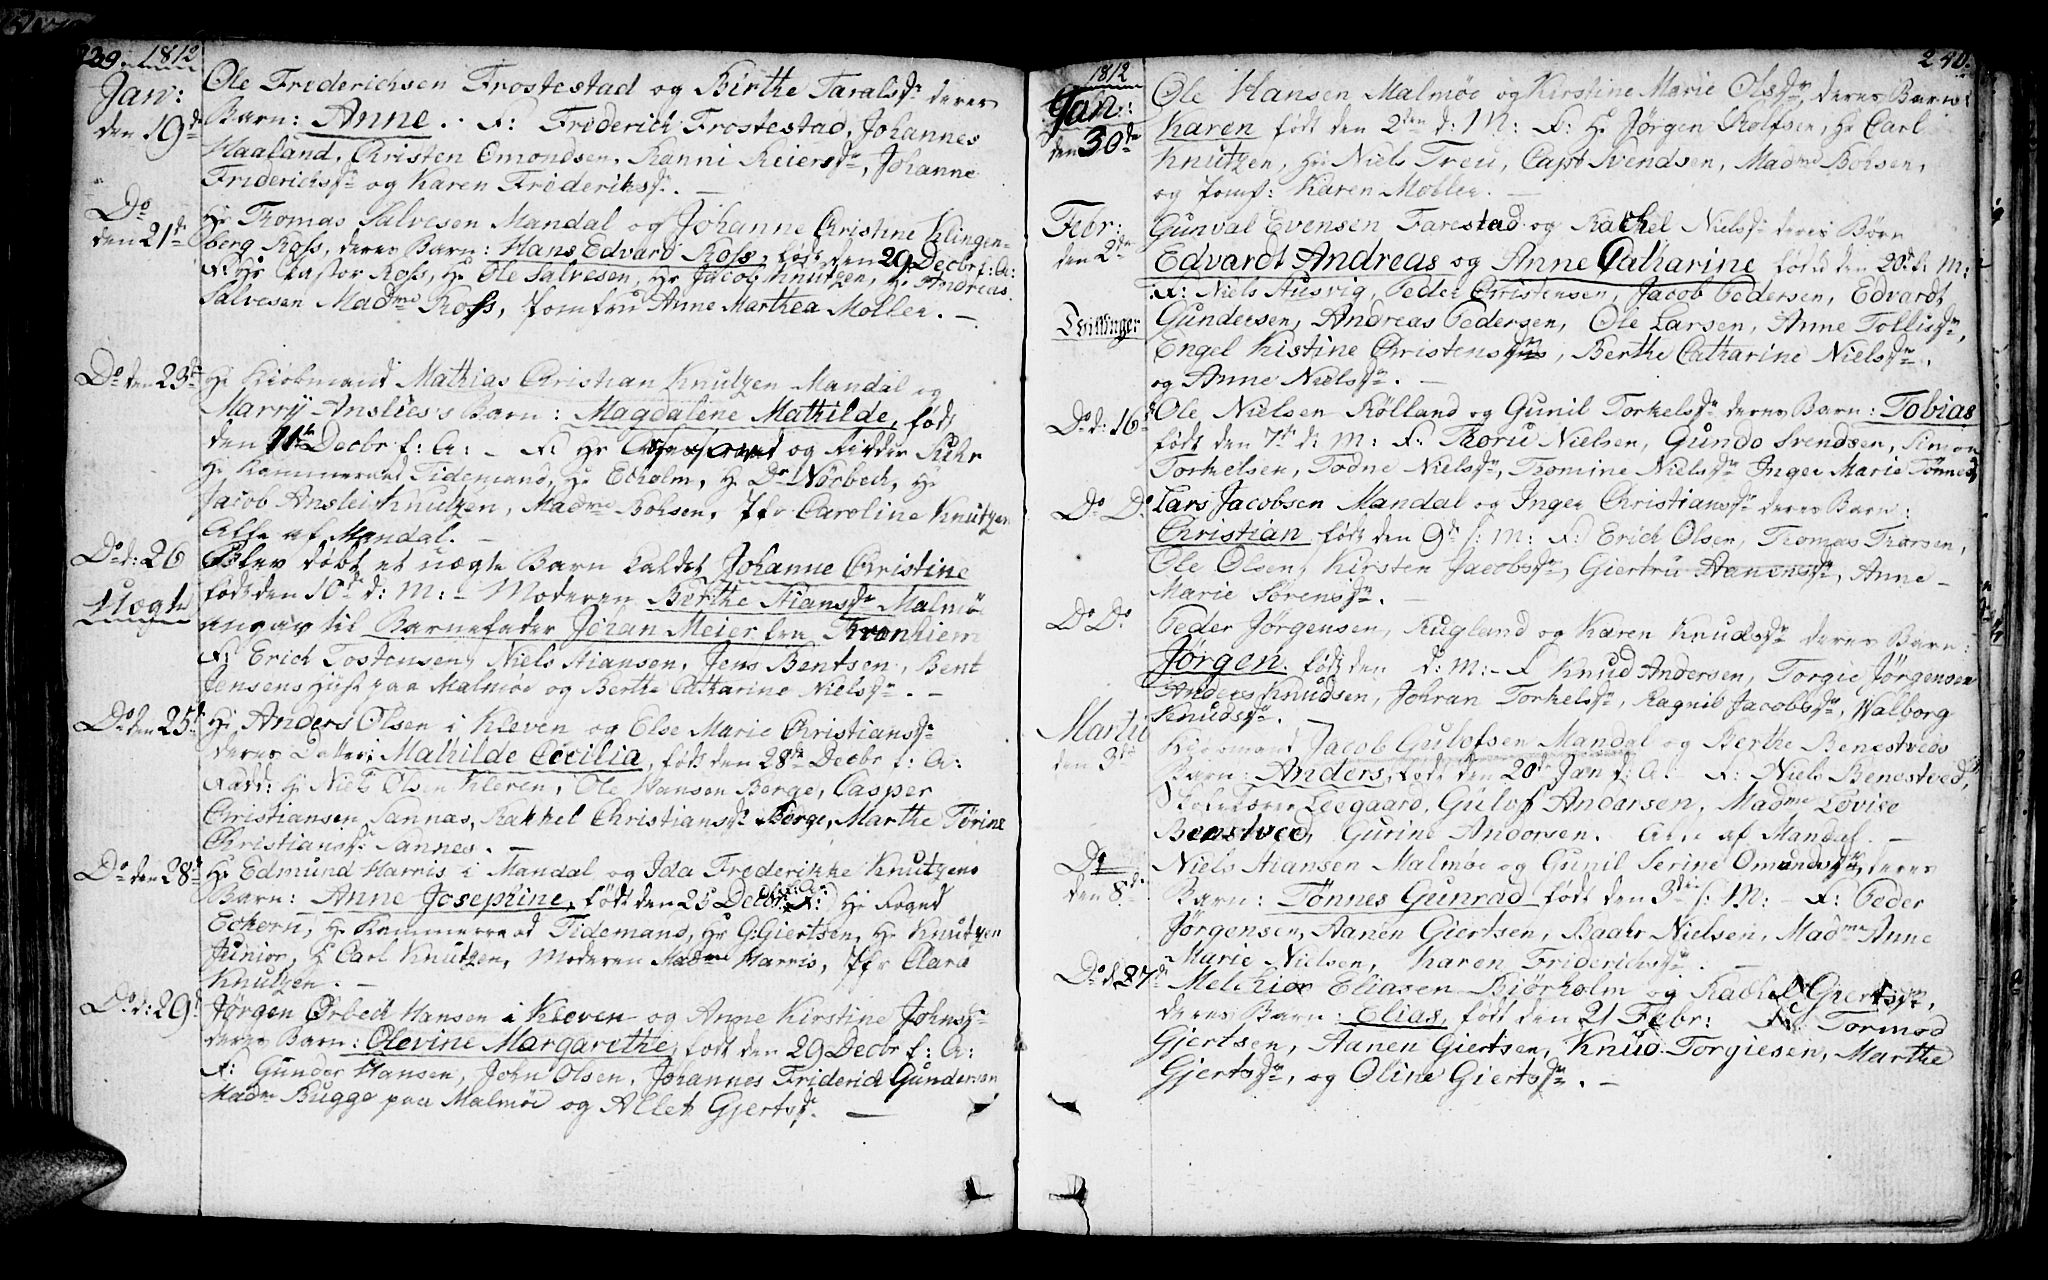 239. 1812
Jan: den 19de
Ole Friderichsen Frostestad og Birthe Taralsdr deres
Barn: Anne. F: Friderich Frostestad, Johannes
Haaland, Christen Omondsen, Ranni Reiersdr, Johanne
Friderichsdr og Karen Frideriksdr.
Do den 21de
Hr Thomas Salvesen Mandal og Johanne Christine Klingen-
berg Ross, deres Barn: Hans Edvard Ross, født den 29 Decbr f: A:
F: Hr Pastor Ross, Hr Ole Salvesen, Hr Jacob Knutzen, Hr Andreas
Salvesen Madme Ross, Jomfru Anne Marthea Møller.
Do den 23de
Hr Kiøbmand Mathias Christian Knutzen Mandal og
Marry Ansleis's Barn: Magdalene Mathilde, født
den 11te Decbr f: A: - F: Hr og Ridder
Hr Kammerraad Tidemand, Hr Echolm, Hr Dr Nørbech, Hr
Jacob Anslei Knutzen, Madme Bohsen, Jfr Caroline Knutzen
Alle af Mandal.
Do d: 26
Uægte
Blev døbt et uægte Barn kaldet Johanne Christine
født den 10de d: M: - Moderen Berthe Stiansdr Malmø
angav til Barnefader Johan Meier fra Tronhiem
F: Erich Tostensen, Niels Stiansen, Jens Bentsen, Bent
Jensens Hust paa Malmøe og Berthe Catharine Nielsdr.
Do den 25de
Hr Anders Olsen i Kleven og Else Marie Christiansdr
deres Datter: Mathilde Cecilia, født den 28de Decbr f: A:
Fadd: Hr Niels Olsen Kleven, Ole Hansen Berge, Casper
Christiansen Sannas, Rakkel Christiansdr Berge, Marthe Tørine
Christiansdr Sannes.
Do den 28de
Hr Edmund Harris i Mandal og Ida Frederikke Knutzens
Barn: Anne Josephine, født den 25 Decbr f: A: F: Hr Foged
Eckern, Hr Kammerraad Tidemand, Hr G: Giertsen, Hr Knutzen
Junior, Hr Carl Knutzen, Moderen Madme Harris, Jfr Clara
Knutzen.
Do d: 29de
Jørgen Ørbech Hansen i Kleven og Anne Kirstine Johnsdr
deres Barn: Olevine Margarethe, født den 29 Decbr f: A:
F: Gunder Hansen, John Olsen, Johannes Friderich Gundersen
Madme Bugge paa Malmøe og Allet Gjertsdr.
1812 240.
Jan: den 30de
Ole Hansen Malmøe og Kirstine Marie Olsdr, deres Barn:
Karen født den 2den d: M: F: Hr Jørgen Rolfsen, Hr Carl
Knutzen, Hr Niels Treu, Capt Svendsen, Madme Bohsen,
og Jomf: Karen Møller.
Febr: den 2den
Tvillinger
Gunval Evensen Farestad og Rachel Nielsdr deres Børn
Edvardt Andreas og Anne Catharine født den 20de f: M:
F: Niels Ausvig, Peder Christensen, Jacob Pedersen, Edvardt
Gundersen, Andreas Pedersen, Ole Larsen, Anne Tollisdr,
Engel Kistine Christensdr, Berthe Catharine Nielsdr,
og Anne Nielsdr.
Do d: 16de
Ole Nielsen Rølland og Gunil Torkelsdr deres Barn: Tobias
født den 7de d: M: F: Thoru Nielsen, Gundo Svendsen, Simon
Torkelsen, Todne Nielsdr, Thomine Nielsdr Inger Marie Tønnesdr
Do Do
Lars Jacobsen Mandal og Inger Christiansdr deres Barn:
Christian født den 9de f: M: F: Erich Olsen, Thomas Thorsen,
Ole Olsen, Kirsten Jacobsdr, Giertru Aanensdr, Anne
Marie Sørensdr.
Do Do
Peder Jørgensen, Rugland og Karen Knudsdr deres Barn:
Jørgen. født den d: M: - F Knud Andersen, Torgie Jørgensen
Anders Knudsen, Johran Torkelsdr, Ragnil Jacobsdr, Walborg
Knudsdr.
Martii den 3de
Kiøbmand Jacob Gulofsen Mandal og Berthe Benestveds
Barn: Anders, født den 20de Jan d: A: F: Niels Benestved,
Skoleholder Leegaard, Gulof Andersen, Madme Lovise
Benestved, Gurine Andersen. Alle af Mandal.
Do den 8de
Niels Stiansen Malmøe og Gunil Serine Omundsdr, deres
Barn: Tønnes Gunrad født den 3die f: M: - F: Peder
Jørgensen, Aanen Giertsen, Baahr Nielsen, Madme Anne
Marie Nielsen, Karen Friderichsdr.
Do d: 27de
Melchior Eliasen Biørholm og Rachel Giertsdr,
deres Barn: Elias, født den 21 Febr: F: Tormod
Gjertsen, Aanen Giertsen, Knud Torgiesen, Marthe
Gjertsdr, og Oline Giertsdr.